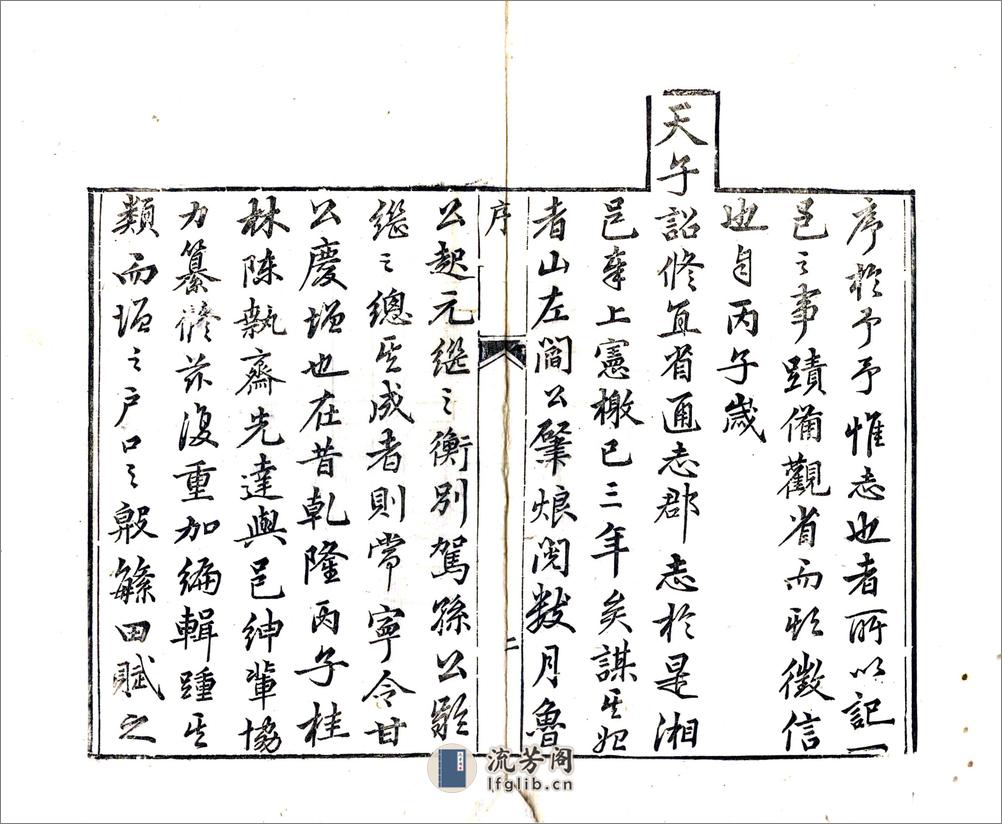 序於予予惟志也者所以記一
邑之事蹟備觀省而昭徵信
也自丙子歲
天子詔修直省通志郡志於是湘
邑奉上憲檄已三年矣謀其始
者山左閻公肇烺閱數月魯
序
二
公起元繼之衡別駕孫公
繼之總其成者則常寧令甘
公慶增也在昔乾隆丙子桂
林陳執齋先達與邑紳輩協
力纂修茲復重加編輯踵其
類而增之戶口之殷繁田賦之
流芳阁
lfglib.cn